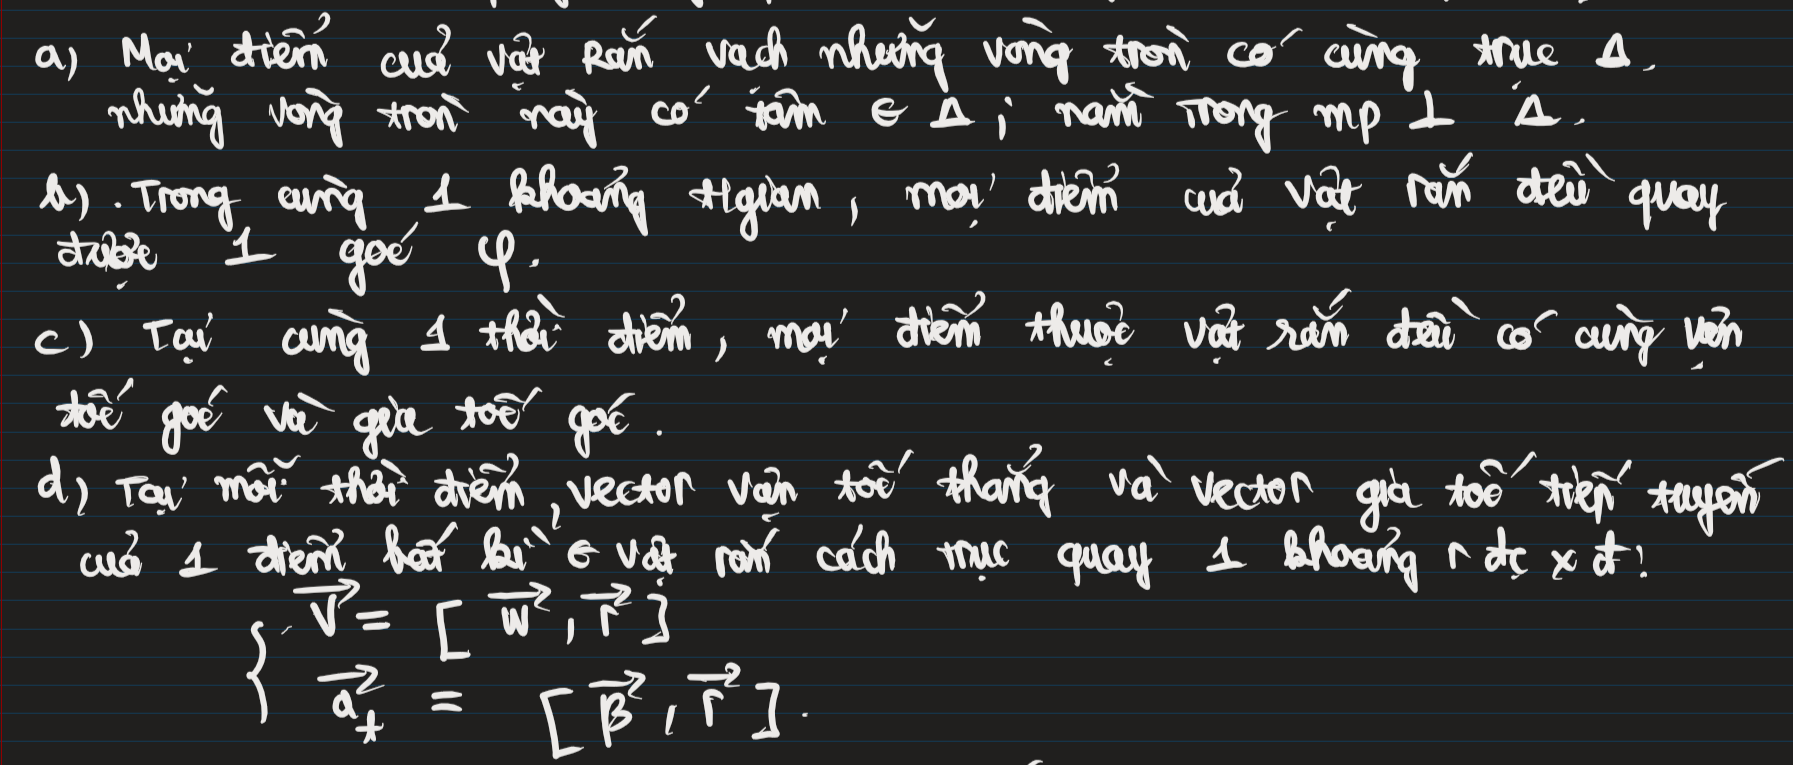 a) Mọi điểm của vật Rắn vạch những vòng tròn có cùng trục Δ.
những vòng tròn này có tâm ∈ Δ ; nằm trong mp ⊥ Δ.
b). Trong cùng 1 khoảng tgian, mọi điểm của vật rắn đều quay
được 1 góc φ.
c) Tại cùng 1 thời điểm, mọi điểm thuộc vật rắn đều có cùng vận
tốc góc và gia tốc góc.
d) Tại mỗi thời điểm, vector vận tốc thẳng và vector gia tốc tiếp tuyến
của 1 điểm bất kì ∈ vật rắn cách trục quay 1 khoảng r đc x đ!
{ v⃗ = [ w⃗ , r⃗ ]
a⃗ₜ = [ β⃗ , r⃗ ].